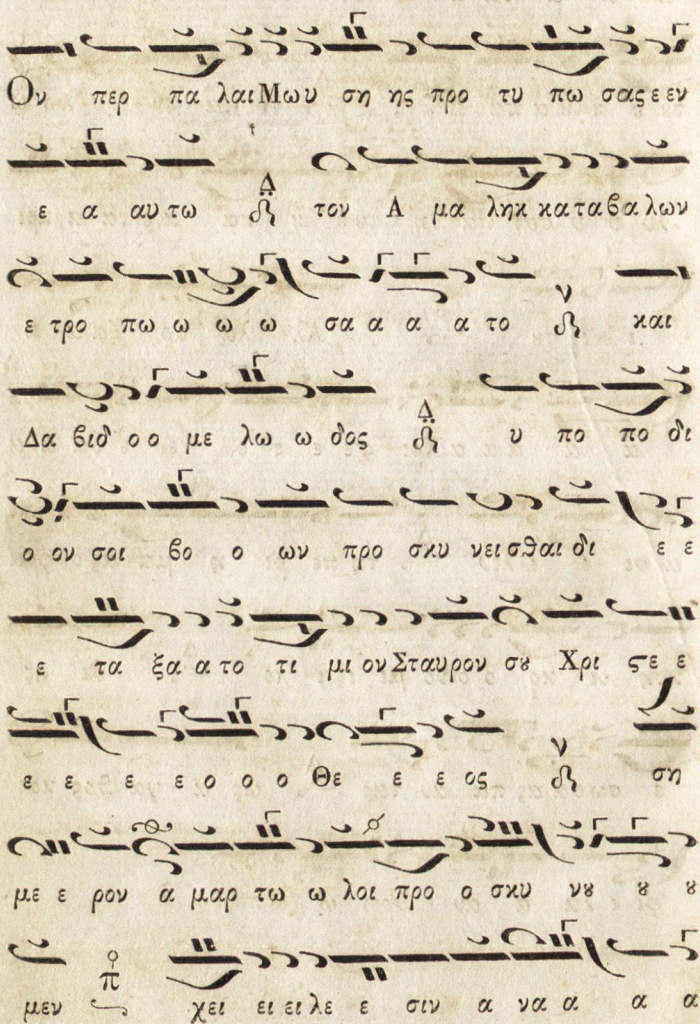 Ον περ πα λαι Μωυ ση ης προ τυ πω σας ε εν
ε α αυ τω Δ τον Α μα ληκ κα τα βα λων
ε τρο πω ω ω ω σα α α α το ν και
Δα βιδ ο ο με λω ω δος Δ υ πο πο δι
ο ον σοι βο ο ων προ σκυ νεισθαι δι ε ε
ε τα ξα α το τι μι ον Σταυρον σȣ Χρι ϛε ε
ε ε ε ε ο ο ο Θε ε ε ος ν ση
με ε ρον α μαρ τω ω λοι προ ο σκυ νȣ ȣ ȣ
μεν π χει ει ει λε ε σιν α να α α α